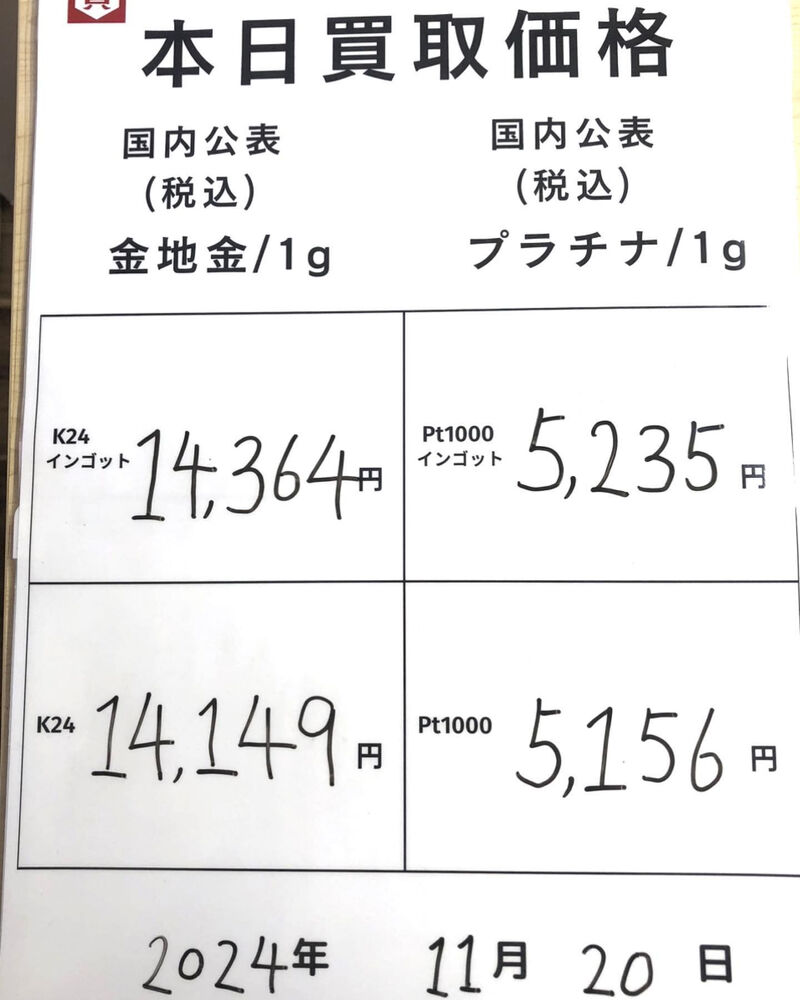 本日買取価格
国内公表
(税込)
金地金/1g
国内公表
(税込)
プラチナ/1g
K24
インゴット 14,364円
Pt1000
インゴット 5,235円
K24 14,149円
Pt1000 5,156円
2024年 11月 20日